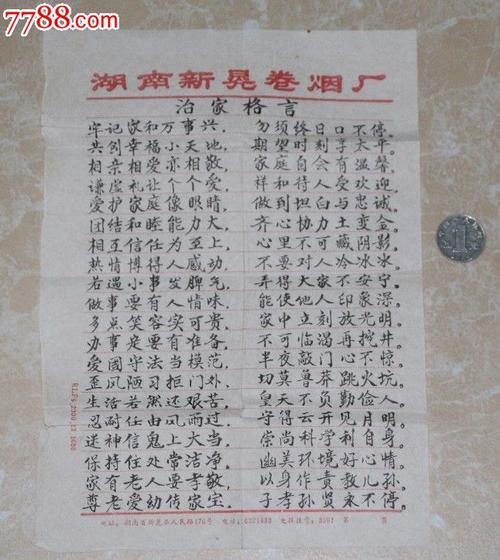 7788.com
湖南新晃卷烟厂
治家格言
牢记家和万事兴，勿须终日口不停。
共创幸福小天地，期望时刻享太平。
相亲相爱亦相敬，家庭自会有温馨。
谦虚礼让个个爱，祥和待人受欢迎。
爱护家庭像眼睛，做到坦白与忠诚。
团结和睦能力大，齐心协力土变金。
相互信任为至上，心里不可藏阴影。
热情博得人感动，不要对人冷冰冰。
若遇小事发脾气，弄得大家不安宁。
做事要有人情味，能使他人印象深。
多点笑容实可贵，家中立刻放光明。
办事定要有准备，不可临渴再挖井。
爱国守法当模范，半夜敲门心不惊。
歪风陋习拒门外，切莫鲁莽跳火坑。
生活若然还艰苦，皇天不负勤俭人。
忍耐任由风雨过，守得云开见月明。
迷神信鬼上大当，崇尚科学利自身。
保持住处常洁净，幽美环境好心情。
家有老人要孝敬，以身作责教儿孙。
尊老爱幼传家宝，子孝孙贤永不停。
地址：湖南省新晃县人民路176号 电话：6221433 电报挂号：3591 第 页